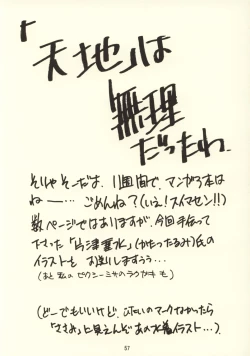 「天地」は
無理
だったわ
そりゃそーだよ、1週間で、マンガ3本は
ねー…。ごめんね?(いえ!スイマセン!!)
数ページではありますが、今回手伝って
下さった「片津雲水」(かたつたるみ)氏の
イラストも お楽しみすうう…
(あと 私の ピクシーミサのラクガキ も)
(どーでもいいけど、のマークなかったら
「ささみ」に見えんどあの水着イラスト…)
57